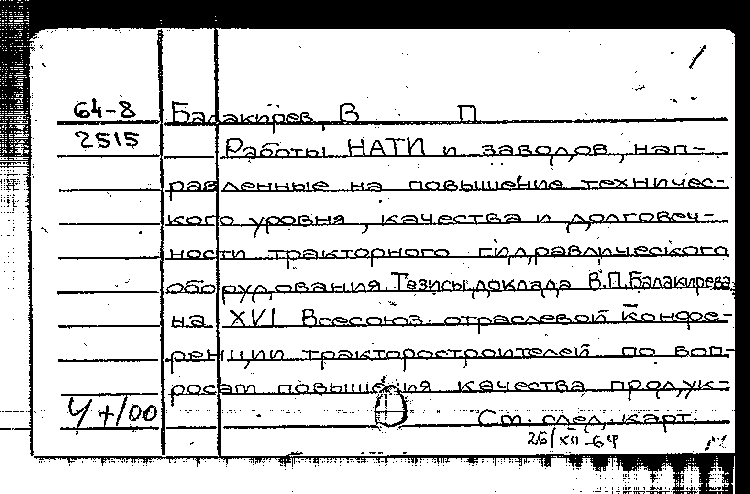 64-8 Балакирев, В П
2515 Работы НАТИ и заводов, нап-
равленные на повышение техничес-
кого уровня, качества и долговеч-
ности тракторного гидравлического
оборудования. Тезисы доклада В.П.Балакирева
на XVI Всесоюз. отраслевой конфе-
ренции тракторостроителей по воп-
росам повышения качества продук-
Ч+/00 См. след. карт.
26/XII-64